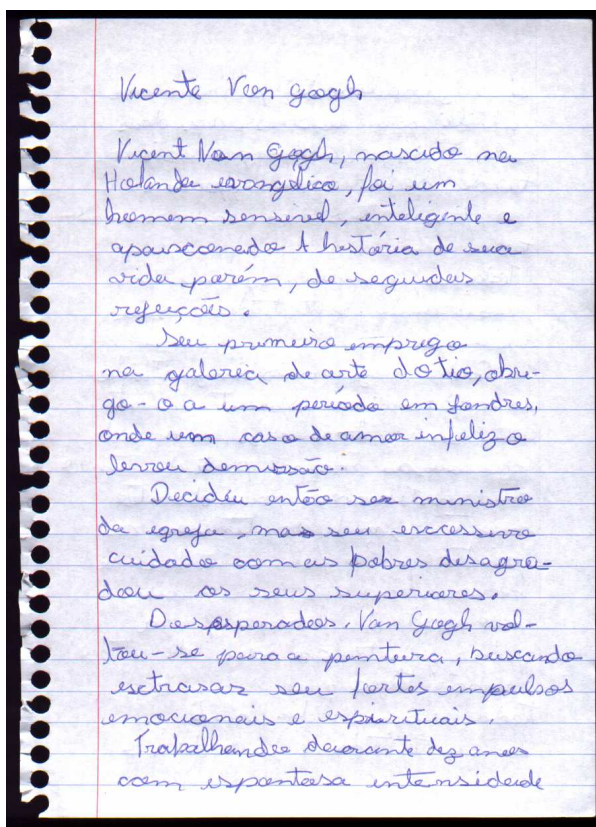 Vicente Van gogh
Vicent Van Gogh, nascido na
Holanda evangélico, foi um
homem sensivel, inteligente e
apaisconado A história de sua
vida parém, de seguidas
rejeiçøes.
Seu primeiro emprego
na galeria de arte do tio, obri-
go-o a um período em Londres,
onde um caso de amor infeliz o
levou demissão.
Decidiu então ser ministro
da egreja, mas seu escessivo
cuidado com as pobres desagra-
dou os seus superiores.
Desesperados. Van Gogh vol-
tou-se para a pintura, buscando
esctrasar seu fortes impulsos
emocionais e espirituais.
Trabalhando durante dez anos
com espantosa intensidade